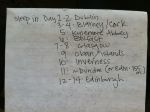 Sleep in Day 1-2 Dublin
3-4 Blarney/Cork
5 Kylemore Abbey
6 Belfast
7-8 Glasgow
9 Oban/Islands
10 Inverness
11 Dundee
12-14 Edinburgh